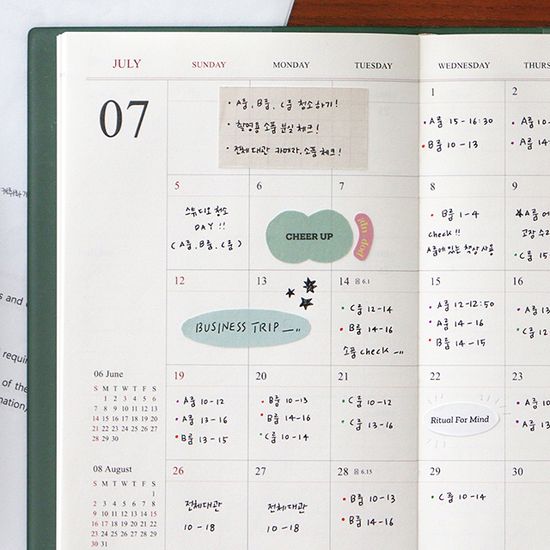 JULY
SUNDAY MONDAY TUESDAY WEDNESDAY THURS
07
• A룸, B룸, C룸 청소하기!
• 촬영용 소품 분실 체크!
• 전체대관 카메라, 소품 체크!
1 2
• A룸 15 - 16:30
• B룸 10 - 13
• A룸 10
• A룸 14
5 6 7 8 9
스튜디오 청소
DAY !!
( A룸, B룸, C룸 )
CHEER UP
• B룸 1 - 4
check !!
A룸에 있는 책상 사용
★A룸
고장 수리
• C룸 15
12 13 14 음 6.1 15 16
BUSINESS TRIP
• C룸 12 - 14
• B룸 14 - 16
소품 check
• A룸 12 - 12:50
• A룸 14 - 16
• B룸 14 - 15
• A룸 13
• C룸 12
06 June
S M T W T F S
1 2 3 4 5 6
7 8 9 10 11 12 13
14 15 16 17 18 19 20
21 22 23 24 25 26 27
28 29 30
19 20 21 22 23
• A룸 10 - 12
• A룸 13 - 16
• B룸 13 - 15
• B룸 10 - 13
• B룸 14 - 16
• C룸 10 - 14
• C룸 10 - 12
• C룸 13 - 16
Ritual For Mind
• A룸 13
• B룸 10
08 August
S M T W T F S
1
2 3 4 5 6 7 8
9 10 11 12 13 14 15
16 17 18 19 20 21 22
23 24 25 26 27 28 29
30 31
26 27 28 음 6.15 29 30
전체대관
10 - 18
전체대관
10 - 18
• B룸 10 - 13
• B룸 14 - 16
• C룸 10 - 14
s and
requir
of the
nation)